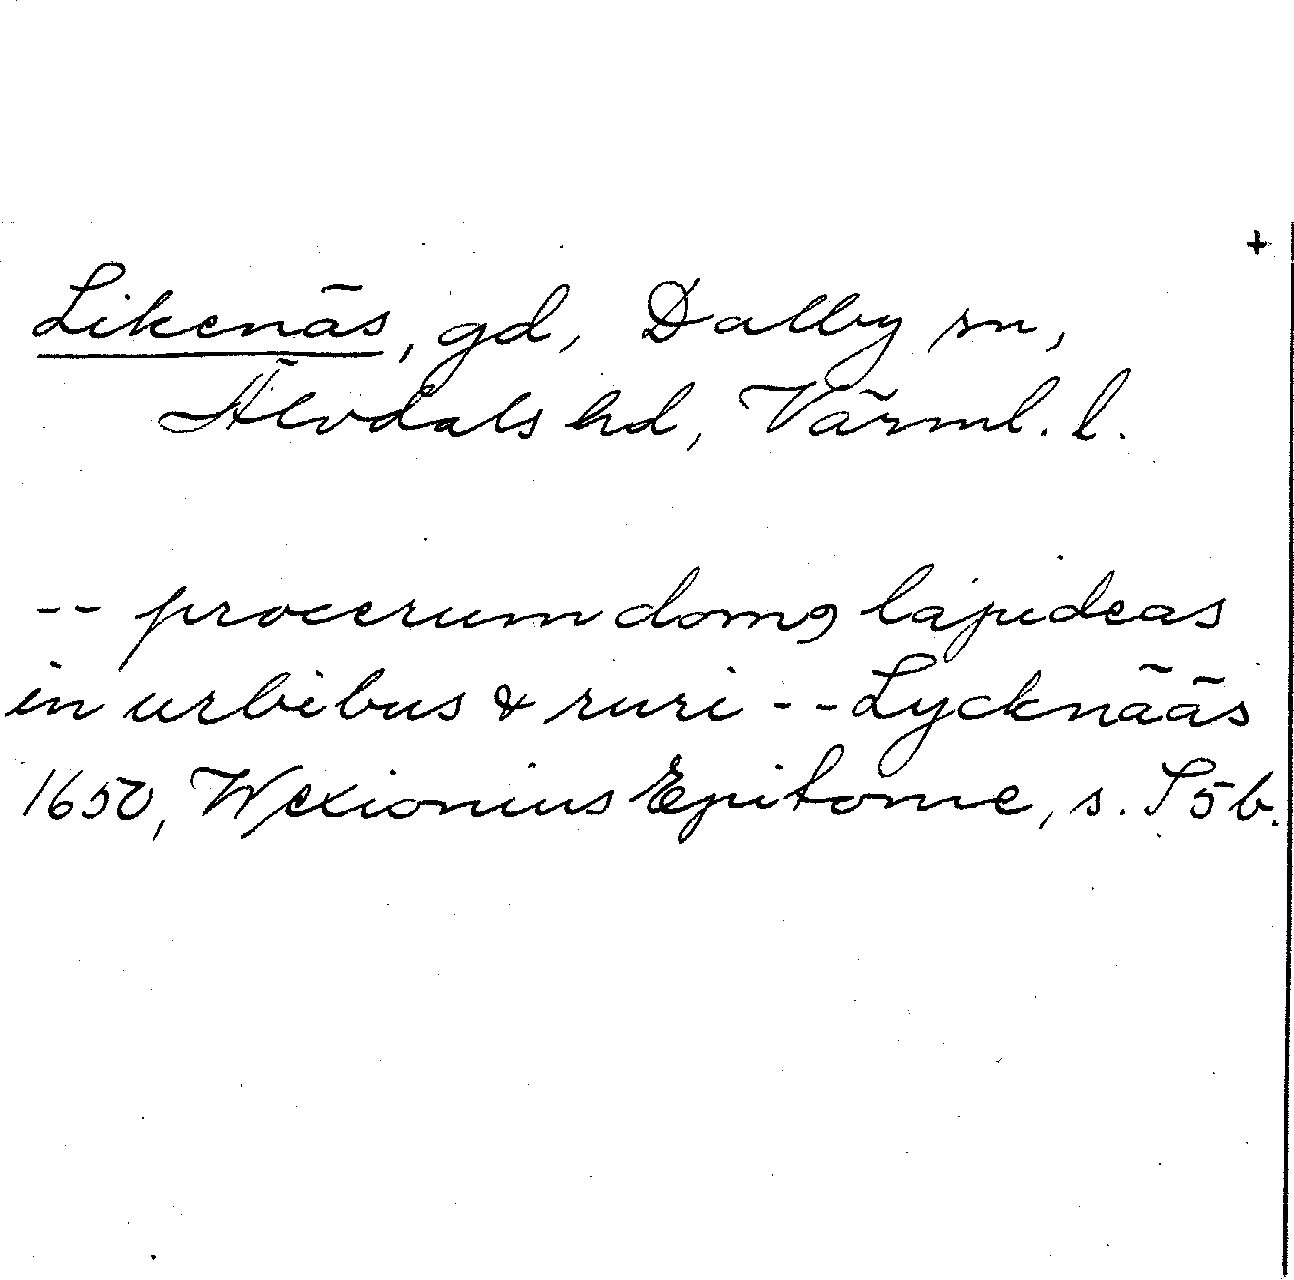 +
Likenäs, gd, Dalby sn,
Älvdals hd, Värml. l.
-- procerum domꝰ lapideas
in urbibus & ruri -- Lycknääs
1650, Wexionius Epitome, s. S5b.